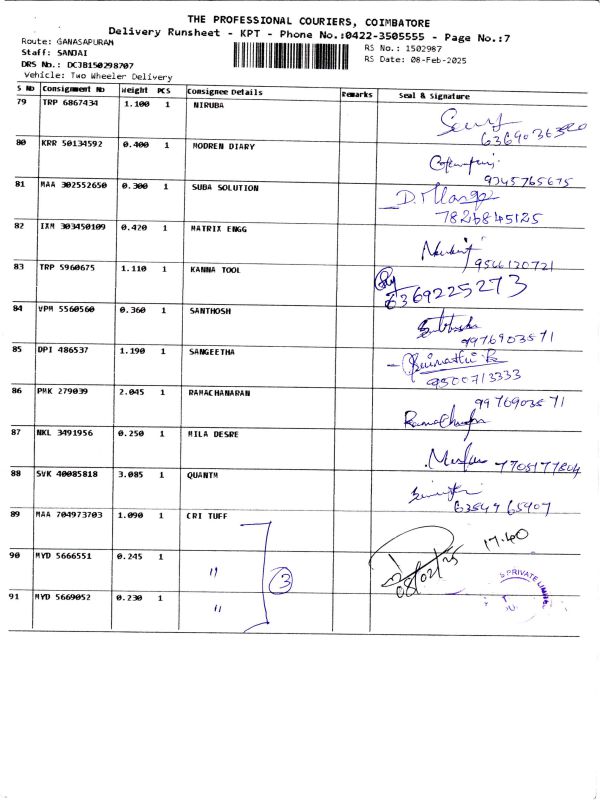 THE PROFESSIONAL COURIERS, COIMBATORE
Delivery Runsheet - KPT - Phone No.:0422-3505555 - Page No.:7
Route: GANASAPURAM
RS No.: 1502987
Staff: SANJAI
RS Date: 08-Feb-2025
DRS No.: DCJB150298707
Vehicle: Two Wheeler Delivery
S No Consignment No Weight PCS Consignee Details Remarks Seal & Signature
79 TRP 6867434 1.100 1 NIRUBA
80 KRR 50134592 0.400 1 MODREN DIARY
9345765675
81 MAA 302552650 0.300 1 SUBA SOLUTION
7826845125
82 IXM 303450109 0.420 1 MATRIX ENGG
9566120721
83 TRP 5960675 1.110 1 KANNA TOOL
6369225273
84 VPM 5560560 0.360 1 SANTHOSH
9976903571
85 DPI 486537 1.190 1 SANGEETHA
9500713333
86 PMK 279039 2.045 1 RAMACHANARAN
9976903571
87 NKL 3491956 0.250 1 MILA DESRE
7705177804
88 SVK 40085818 3.085 1 QUANTM
89 MAA 704973703 1.090 1 CRI TUFF
17.40
90 MYD 5666551 0.245 1 "
08/02/25
3
PRIVATE
91 MYD 5669052 0.230 1 "